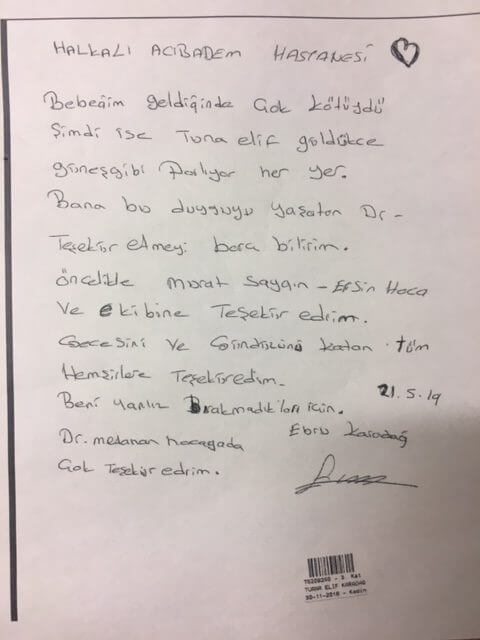 HALKALI ACIBADEM HASTANESİ
Bebeğim geldiğinde Çok kötüydü
Şimdi ise Tuna elif güldükçe
güneşgibi Parlıyor her yer.
Bana bu duyguyu yaşatan Dr-
Teşekür etmeyi borç bilirim.
öncelikle murat saygın - Ersin Hoca
Ve ekibine Teşekür edrim.
Gecesini ve Gündüzünü katan tüm
Hemşirlere Teşeküredim-
21.5.19
Beni yanlız Bırakmadıkları için.
Ebru Karadağ
Dr. medanan hocagada
Çok Teşekür edrim.
3. Kat
TUANA ELIF KARADAG
30-11-2018 - Kadin